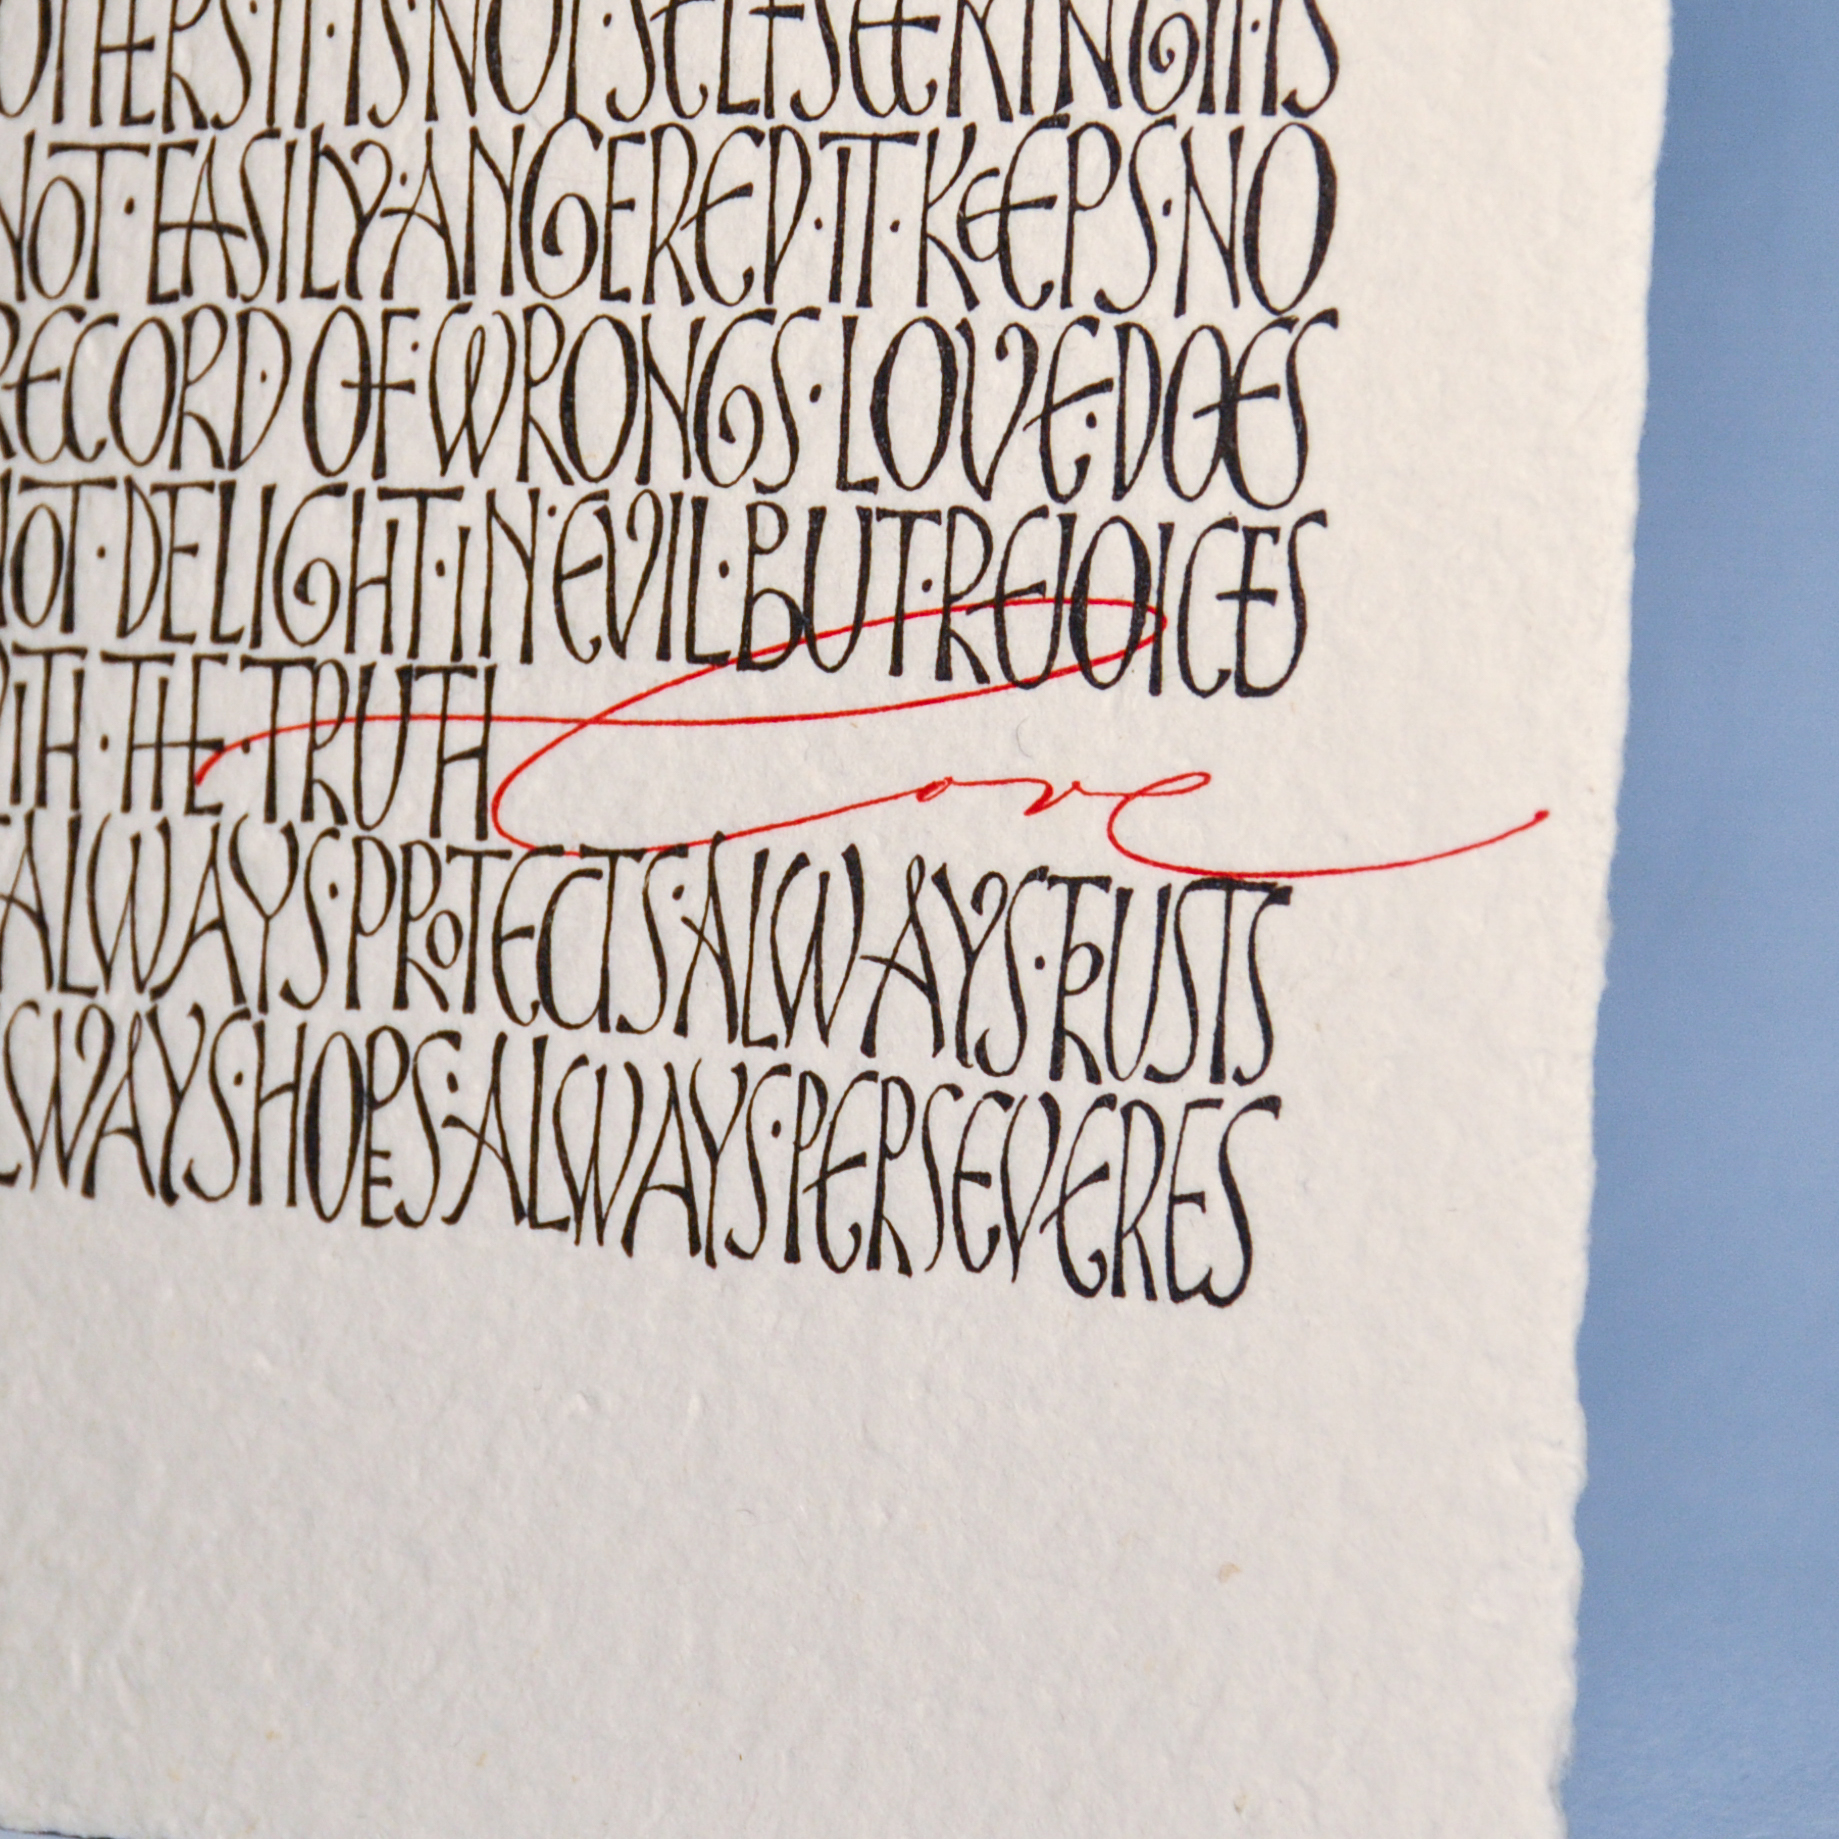 OTHERS·IT·IS·NOT·SELFSEEKING·IT·IS
NOT·EASILY·ANGERED·IT·KEEPS·NO
RECORD·OF·WRONGS·LOVE·DOES
NOT·DELIGHT·IN·EVIL·BUT·REJOICES
ITH·THE·TRUTH Love
ALWAYS·PROTECTS·ALWAYS·TRUSTS
LWAYS·HOPES·ALWAYS·PERSEVERES